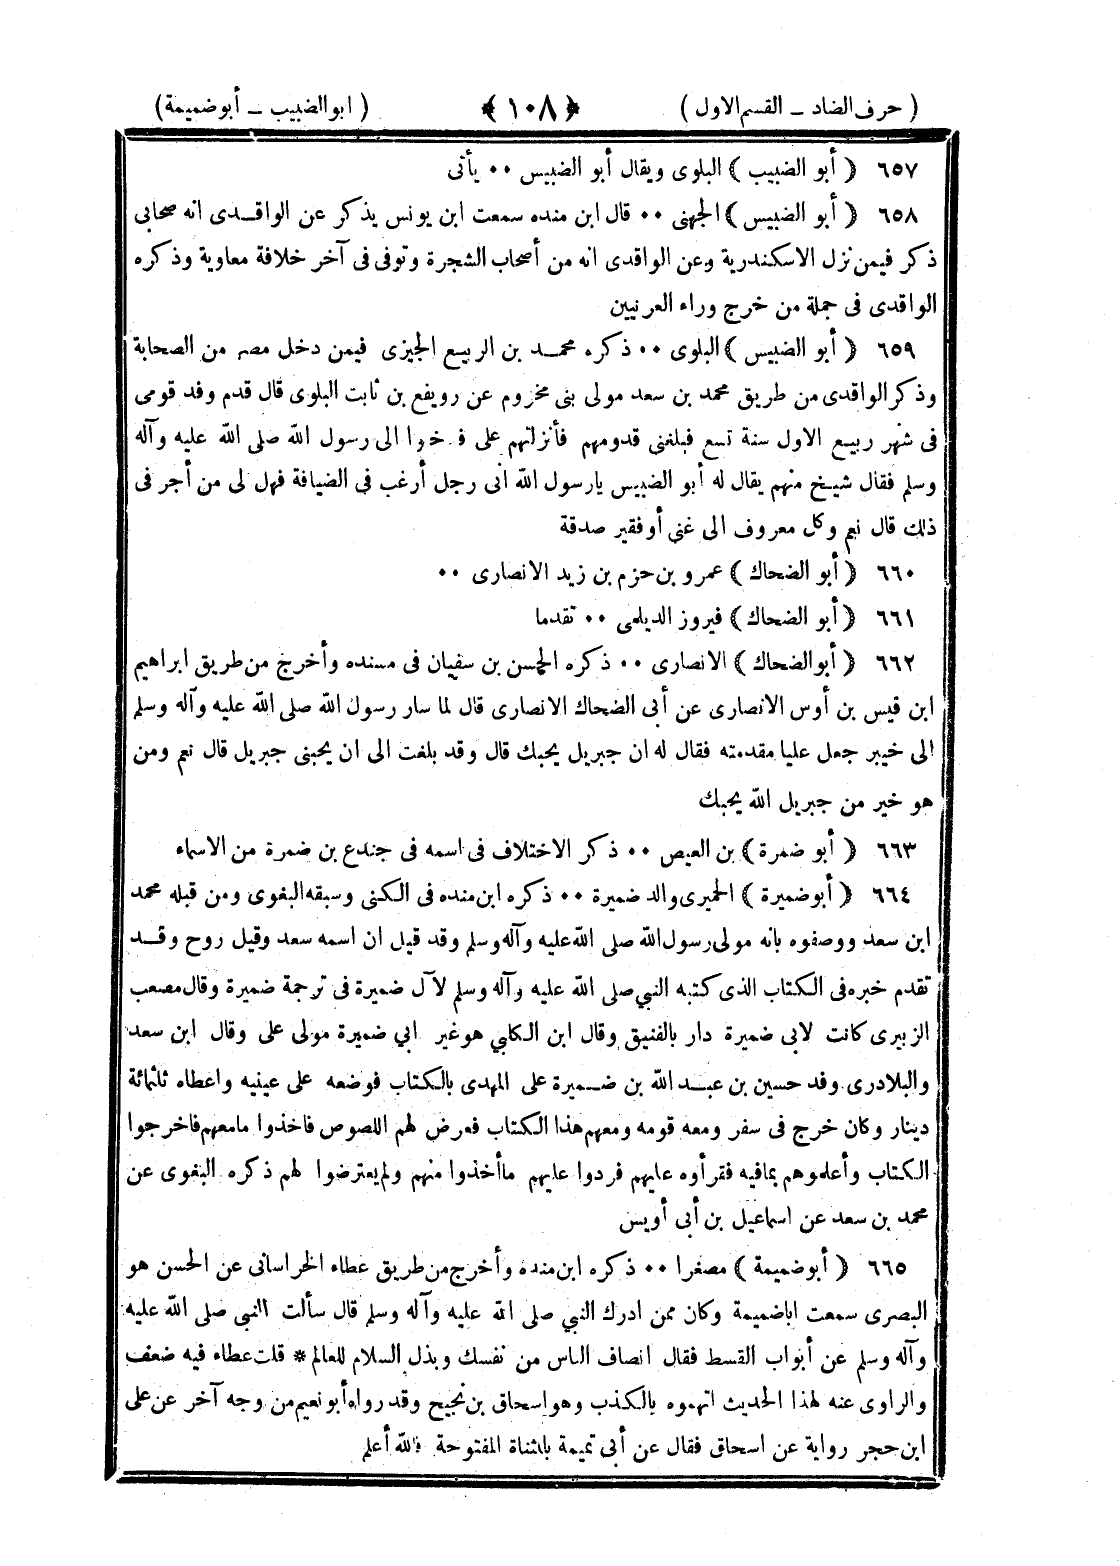 ( حرف الضاد ــ القسم الاول ) ﴿ ١٠٨ ﴾ ( ابوالضبيب ــ أبوضميمة )
٦٥٧ ﴿ أبو الضبيب ﴾ البلوى ويقال أبو الضبيس ٠٠ يأتى
٦٥٨ ﴿ أبو الضبيس ﴾ الجهنى ٠٠ قال ابن منده سمعت ابن يونس يذكر عن الواقدى انه صحابى
ذكر فيمن نزل الاسكندرية وعن الواقدى انه من أصحاب الشجرة وتوفى فى آخر خلافة معاوية وذكره
الواقدى فى جملة من خرج وراء العرنيين
٦٥٩ ﴿ أبو الضبيس ﴾ البلوى ٠٠ ذكره محمد بن الربيع الجيزى فيمن دخل مصر من الصحابة
وذكر الواقدى من طريق محمد بن سعد مولى بنى مخزوم عن رويفع بن ثابت البلوى قال قدم وفد قومى
فى شهر ربيع الاول سنة تسع فبلغنى قدومهم فأنزلتهم على الى رسول الله صلى الله عليه وآله
وسلم فقال شيخ منهم يقال له أبو الضبيس يارسول الله انى رجل أرغب فى الضيافة فهل لى من أجر فى
ذلك قال نعم وكل معروف الى غني أوفقير صدقة
٦٦٠ ﴿ أبو الضحاك ﴾ عمرو بن حزم بن زيد الانصارى ٠٠
٦٦١ ﴿ أبو الضحاك ﴾ فيروز الديلمى ٠٠ تقدما
٦٦٢ ﴿ أبوالضحاك ﴾ الانصارى ٠٠ ذكره الحسن بن سفيان فى مسنده وأخرج من طريق ابراهيم
ابن قيس بن أوس الانصارى عن أبى الضحاك الانصارى قال لما سار رسول الله صلى الله عليه وآله وسلم
الى خيبر جعل عليا مقدمته فقال له ان جبريل يحبك قال وقد بلغت الى ان يحبنى جبريل قال نعم ومن
هو خير من جبريل الله يحبك
٦٦٣ ﴿ أبو ضمرة ﴾ بن العيص ٠٠ ذكر الاختلاف فى اسمه فى جندع بن ضمرة من الاسماء
٦٦٤ ﴿ أبوضميرة ﴾ الحميرى والد ضميرة ٠٠ ذكره ابن منده فى الكنى وسبقه البغوى ومن قبله محمد
ابن سعد ووصفوه بانه مولى رسول الله صلى الله عليه وآله وسلم وقد قيل ان اسمه سعد وقيل روح وقد
تقدم خبره فى الكتاب الذى كتبه النبي صلى الله عليه وآله وسلم لآل ضميرة فى ترجمة ضميرة وقال مصعب
الزبيرى كانت لابى ضميرة دار بالعقيق وقال ابن الكلبي هوغير ابي ضميرة مولى على وقال ابن سعد
والبلادرى وفد حسين بن عبد الله بن ضميرة على المهدى بالكتاب فوضعه على عينيه واعطاه ثلثمائة
دينار وكان خرج فى سفر ومعه قومه ومعهم هذا الكتاب فعرض لهم اللصوص فاخذوا مامعهم فاخرجوا
الكتاب وأعلموهم بمافيه فقرأوه عليهم فردوا عليهم ماأخذوا منهم ولم يعترضوا لهم ذكره البغوى عن
محمد بن سعد عن اسماعيل بن أبى أويس
٦٦٥ ﴿ أبوضميمة ﴾ مصغرا ٠٠ ذكره ابن منده وأخرج من طريق عطاء الخراسانى عن الحسن هو
البصرى سمعت اباضميمة وكان ممن ادرك النبي صلى الله عليه وآله وسلم قال سألت النبى صلى الله عليه
وآله وسلم عن أبواب القسط فقال انصاف الناس من نفسك وبذل السلام للعالم * قلت عطاء فيه ضعف
والراوى عنه لهذا الحديث اتهموه بالكذب وهو اسحاق بن نجيح وقد رواه أبو نعيم من وجه آخر عن على
ابن حجر رواية عن اسحاق فقال عن أبى تميمة بالمثناة المفتوحة فالله أعلم